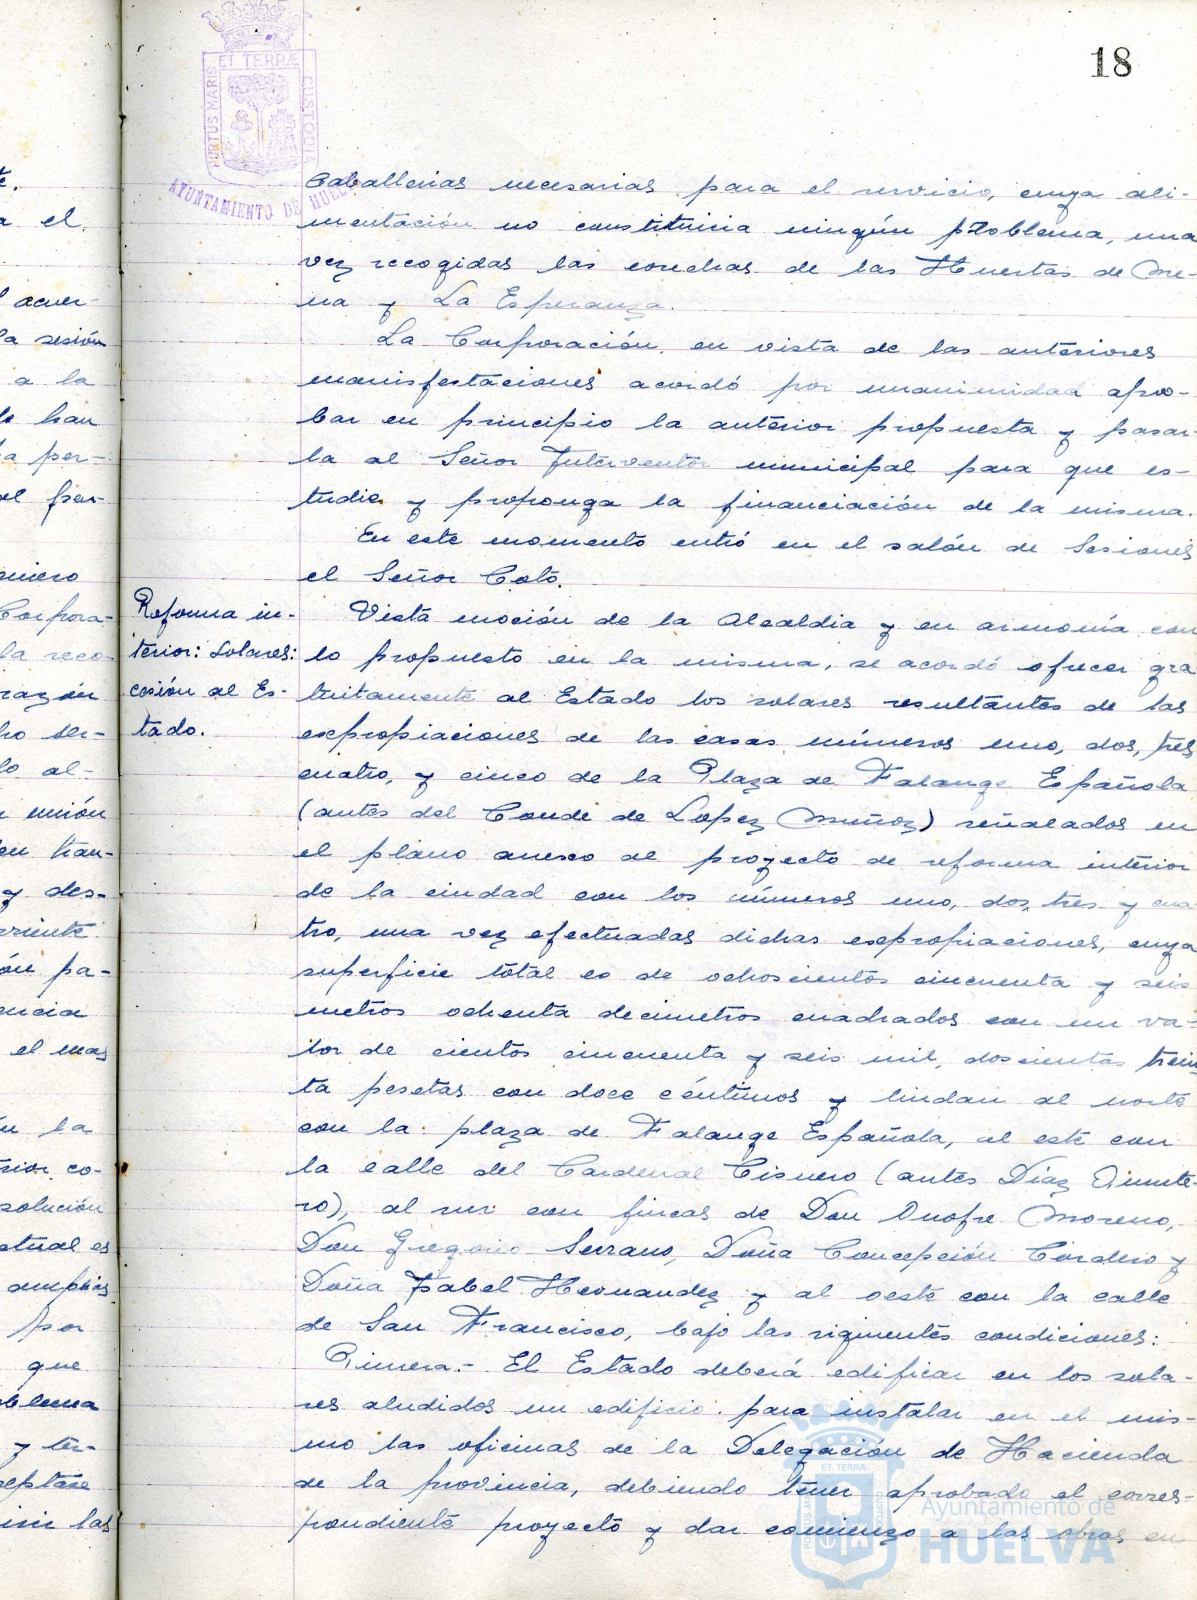 18
PORTUS MARIS ET TERRÆ CUSTODIA
AYUNTAMIENTO DE HUELVA
caballerias necesarias para el servicio, cuya ali-
mentación no constituiria ningún problema, una
vez recogidas las cosechas de las Huertas de Me-
na y La Esperanza.
La Corporación, en vista de las anteriores
manisfestaciones acordó por unanimidad apro-
bar en principio la anterior propuesta y pasar-
la al Señor Interventor municipal para que es-
tudie y proponga la financiación de la misma.
En este momento entró en el salón de Sesiones
el Señor Coto.
Reforma in-
terior: Solares:
cesión al Es-
tado.
Vista moción de la Alcaldia y en armonía con
lo propuesto en la misma, se acordó ofrecer gra
tuitamente al Estado los solares resultantes de las
expropiaciones de las casas números uno, dos, tres
cuatro, y cinco de la Plaza de Falange Española
(antes del Conde de Lopez Muñoz) señalados en
el plano anexo al proyecto de reforma interior
de la ciudad con los números uno, dos, tres y cua
tro, una vez efectuadas dichas expropiaciones, cuya
superficie total es de ochoscientos cincuenta y seis
metros ochenta decimetros cuadrados con un va-
lor de cientos cincuenta y seis mil, doscientas trein
ta pesetas con doce céntimos y lindan al norte
con la plaza de Falange Española, al este con
la calle del Cardenal Cisnero (antes Díaz Quinte-
ro), al sur con fincas de Don Onofre Moreno,
Don Gregorio Serrano, Doña Concepción Cordero y
Doña Isabel Hernandez y al oeste con la calle
de San Francisco, bajo las siguientes condiciones:
Primera.- El Estado deberá edificar en los sola-
res aludidos un edificio para instalar en el mis-
mo las oficinas de la Delegación de Hacienda
de la provincia, debiendo tener aprobado el corres-
pondiente proyecto y dar comienzo a las obras en
te.
a el
acuer-
la sesión
a la
han
per-
el per-
Corpora-
la reco-
razón
ser-
lo al-
unión
en tran-
y des-
ón pa-
encia
el mas
la
rior co-
solución
actual es
amplias
por
que
blema
y ter-
las
Ayuntamiento de
HUELVA